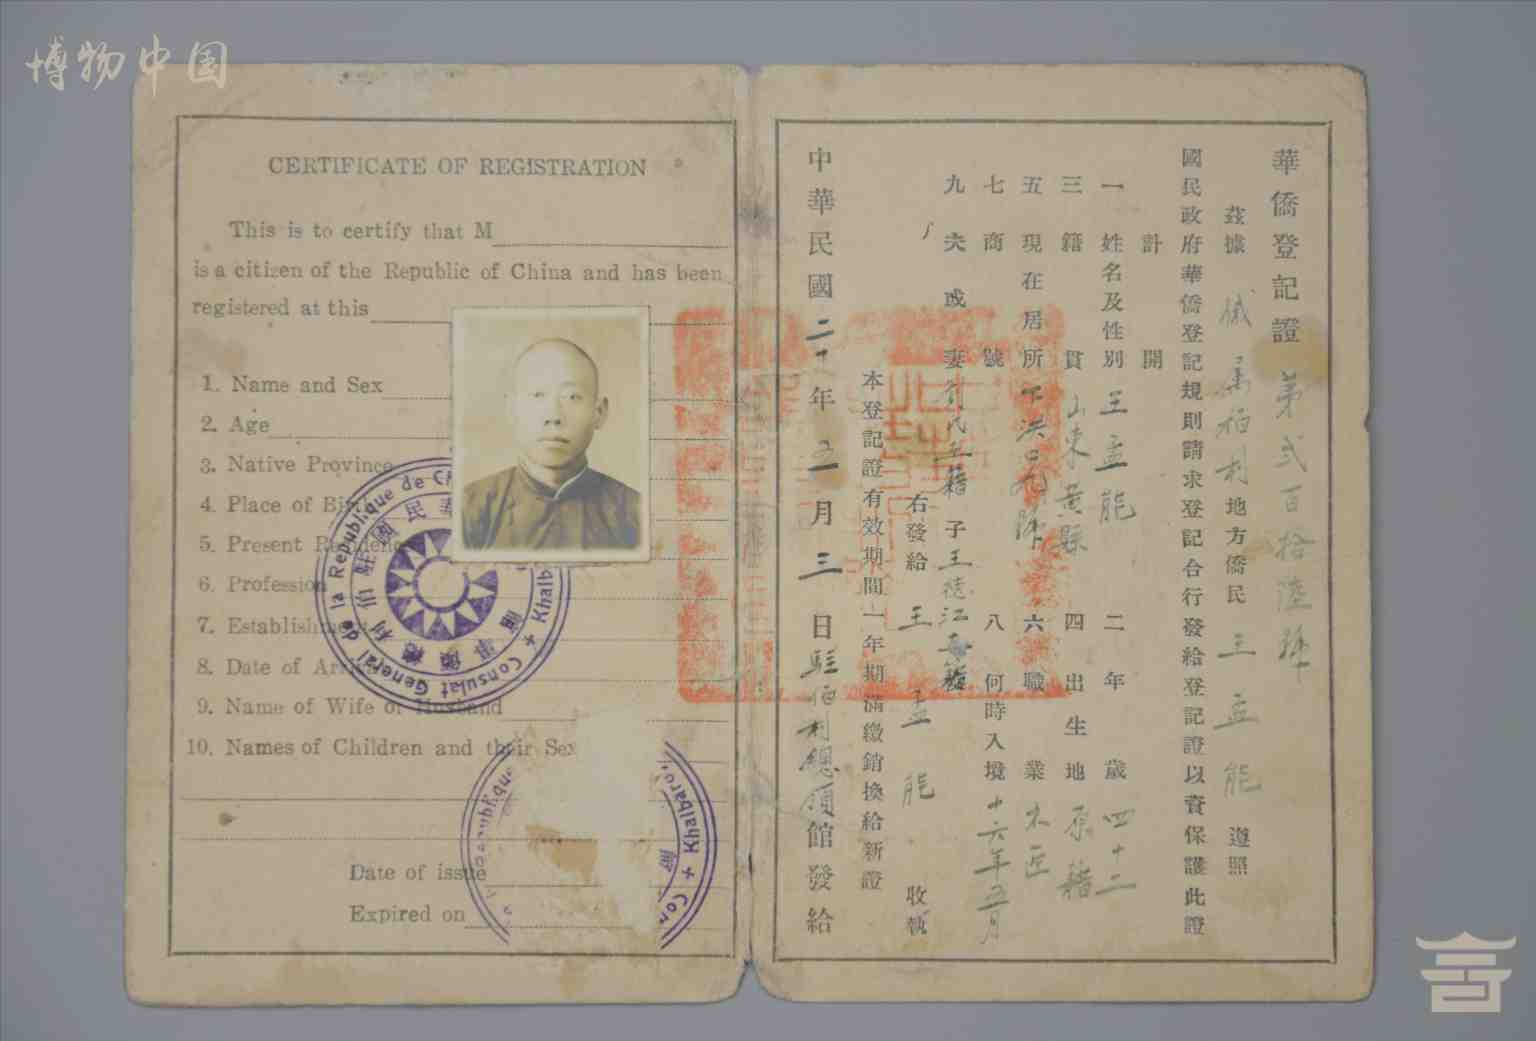 博物中国
CERTIFICATE OF REGISTRATION
This is to certify that M
is a citizen of the Republic of China and has been
registered at this
1. Name and Sex
2. Age
3. Native Province
4. Place of Birth
5. Present Residence
6. Profession
7. Establishment
8. Date of Arri
9. Name of Wife or Husband
10. Names of Children and their Sex
Date of issue
Expired on
Consulat General de la Republique de Ch Khalbaro
華民國駐伯利總領事館
Republique Khalbaro Con
館
華僑登記證 第弍百拾陸號
茲據 僑居伯利地方僑民 王孟能 遵照
國民政府華僑登記規則請求登記合行發給登記證以資保護此證
計開
一 姓名及性別 王孟能 二 年歲 四十二
三 籍貫 山東黃縣 四 出生地 原籍
五 現在居所 下洪口九 六 職業 木匠
七 商號 八 何時入境 十六年五月
九 夫或妻 氏 籍 子 王德江 籍
右發給 王孟能 收執
本登記證有效期間一年期滿繳銷換給新證
中華民國二十年五月三日駐伯利總領館發給